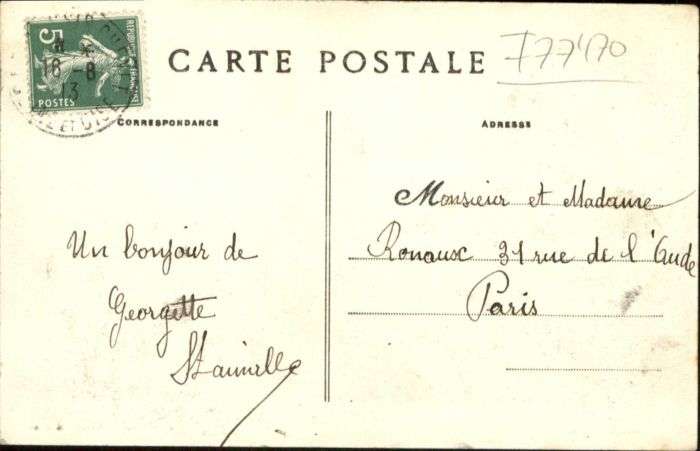 5
RÉPUBLIQUE FRANÇAISE
POSTES
16 - 8
13
SEINE ET OISE
CARTE POSTALE
I77170
CORRESPONDANCE
ADRESSE
Un bonjour de
Georgette
Monsieur et Madame
Ronaux 31 rue de l'Aude
Paris